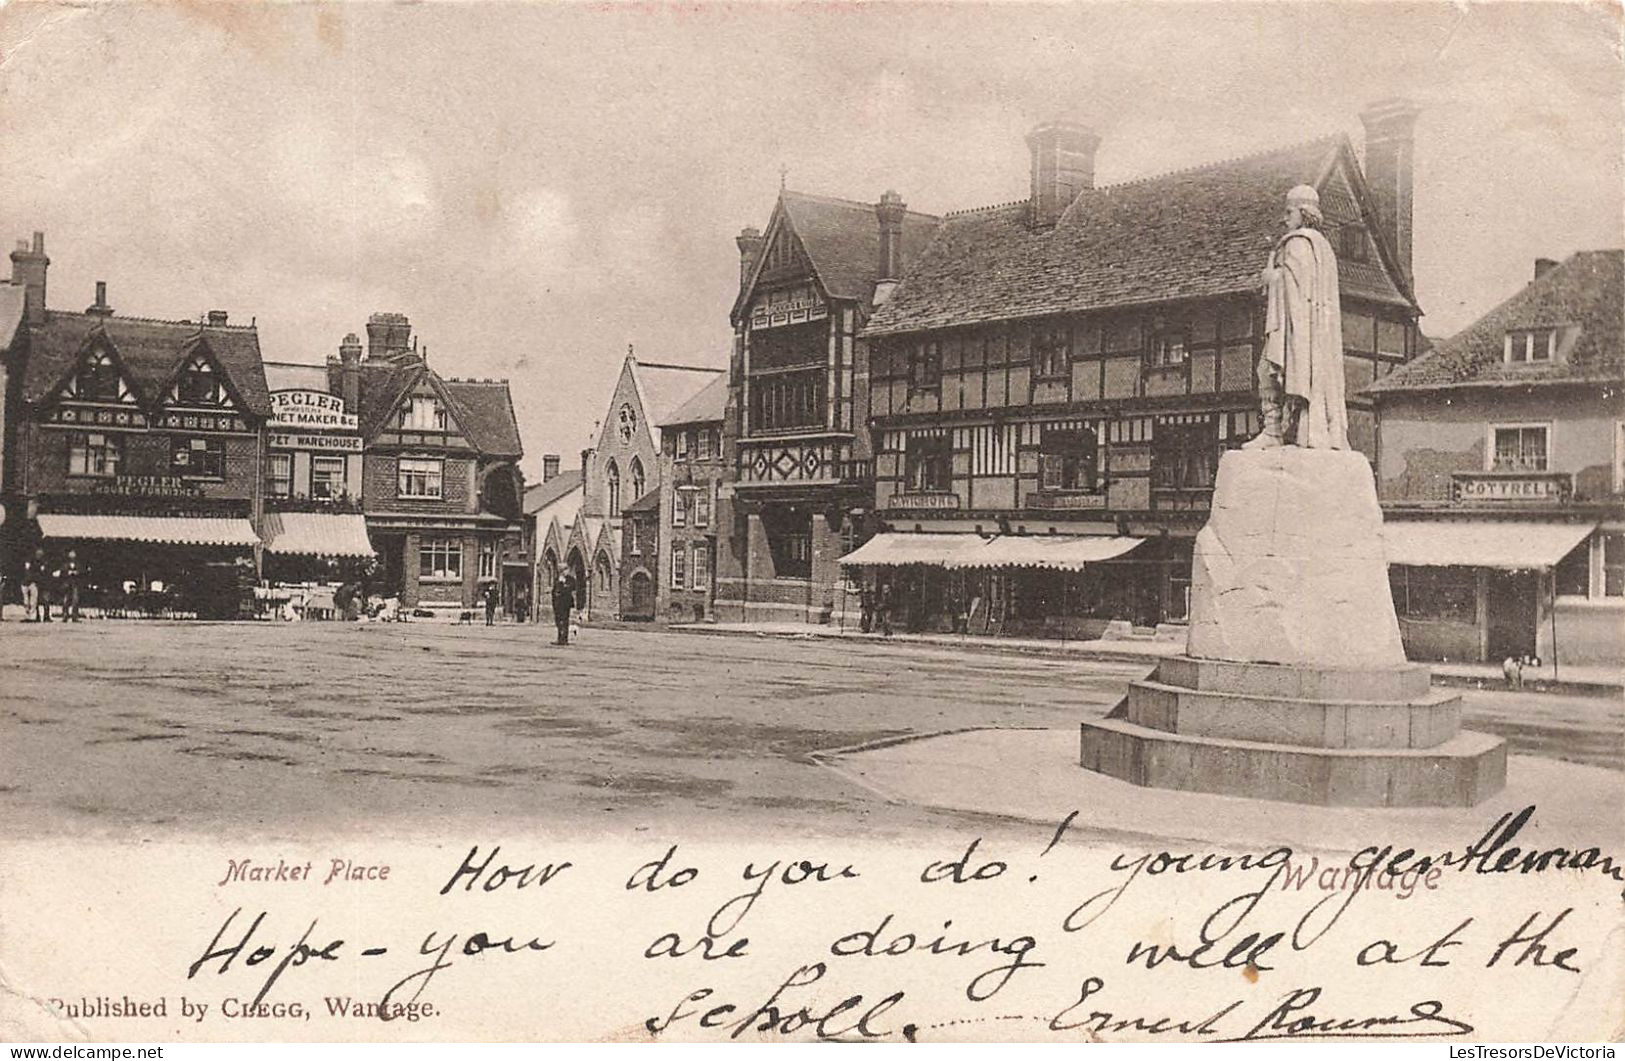 PEGLER
CABINET MAKER &c.
CARPET WAREHOUSE
PEGLER
HOUSE FURNISHER
COTTRELL
Market Place
Wantage
How do you do! young gentleman,
Hope - you are doing well at the
scholl. Ernest
Published by CLEGG, Wantage.
LesTresorsDeVictoria